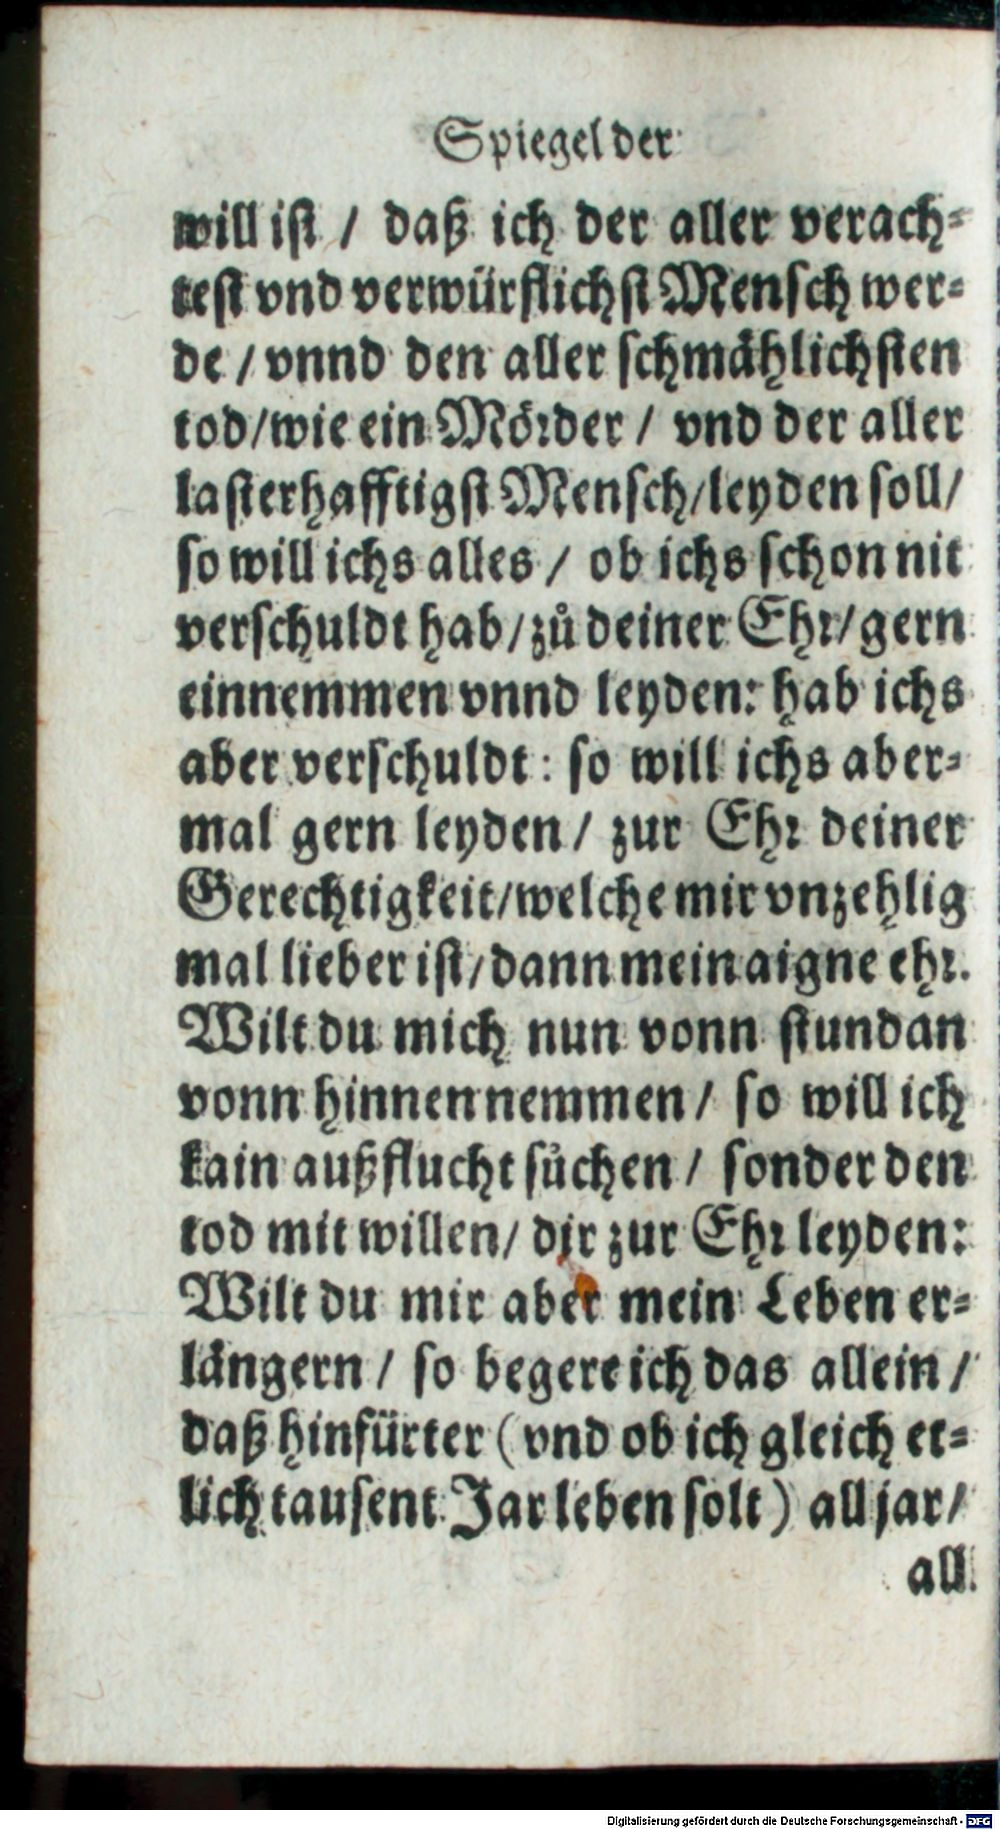 Spiegel der
will ist / daß ich der aller verach⸗
test vnd verwürflichst Mensch wer⸗
de / vnnd den aller schmählichsten
tod/wie ein Mörder / vnd der aller
lasterhafftigst Mensch/leyden soll/
so will ichs alles / ob ichs schon nit
verschuldt hab/zů deiner Ehr/gern
einnemmen vnnd leyden: hab ichs
aber verschuldt: so will ichs aber⸗
mal gern leyden/ zur Ehr deiner
Gerechtigkeit/welche mir vnzehlig
mal lieber ist/dann mein aigne ehr.
Wilt du mich nun vonn stundan
vonn hinnen nemmen/ so will ich
kain außflucht sůchen/ sonder den
tod mit willen/ dir zur Ehr leyden:
Wilt du mir aber mein Leben er⸗
längern/ so begere ich das allein/
daß hinfürter (vnd ob ich gleich et⸗
lich tausent Jar leben solt) all jar/
all
Digitalisierung gefördert durch die Deutsche Forschungsgemeinschaft - DFG